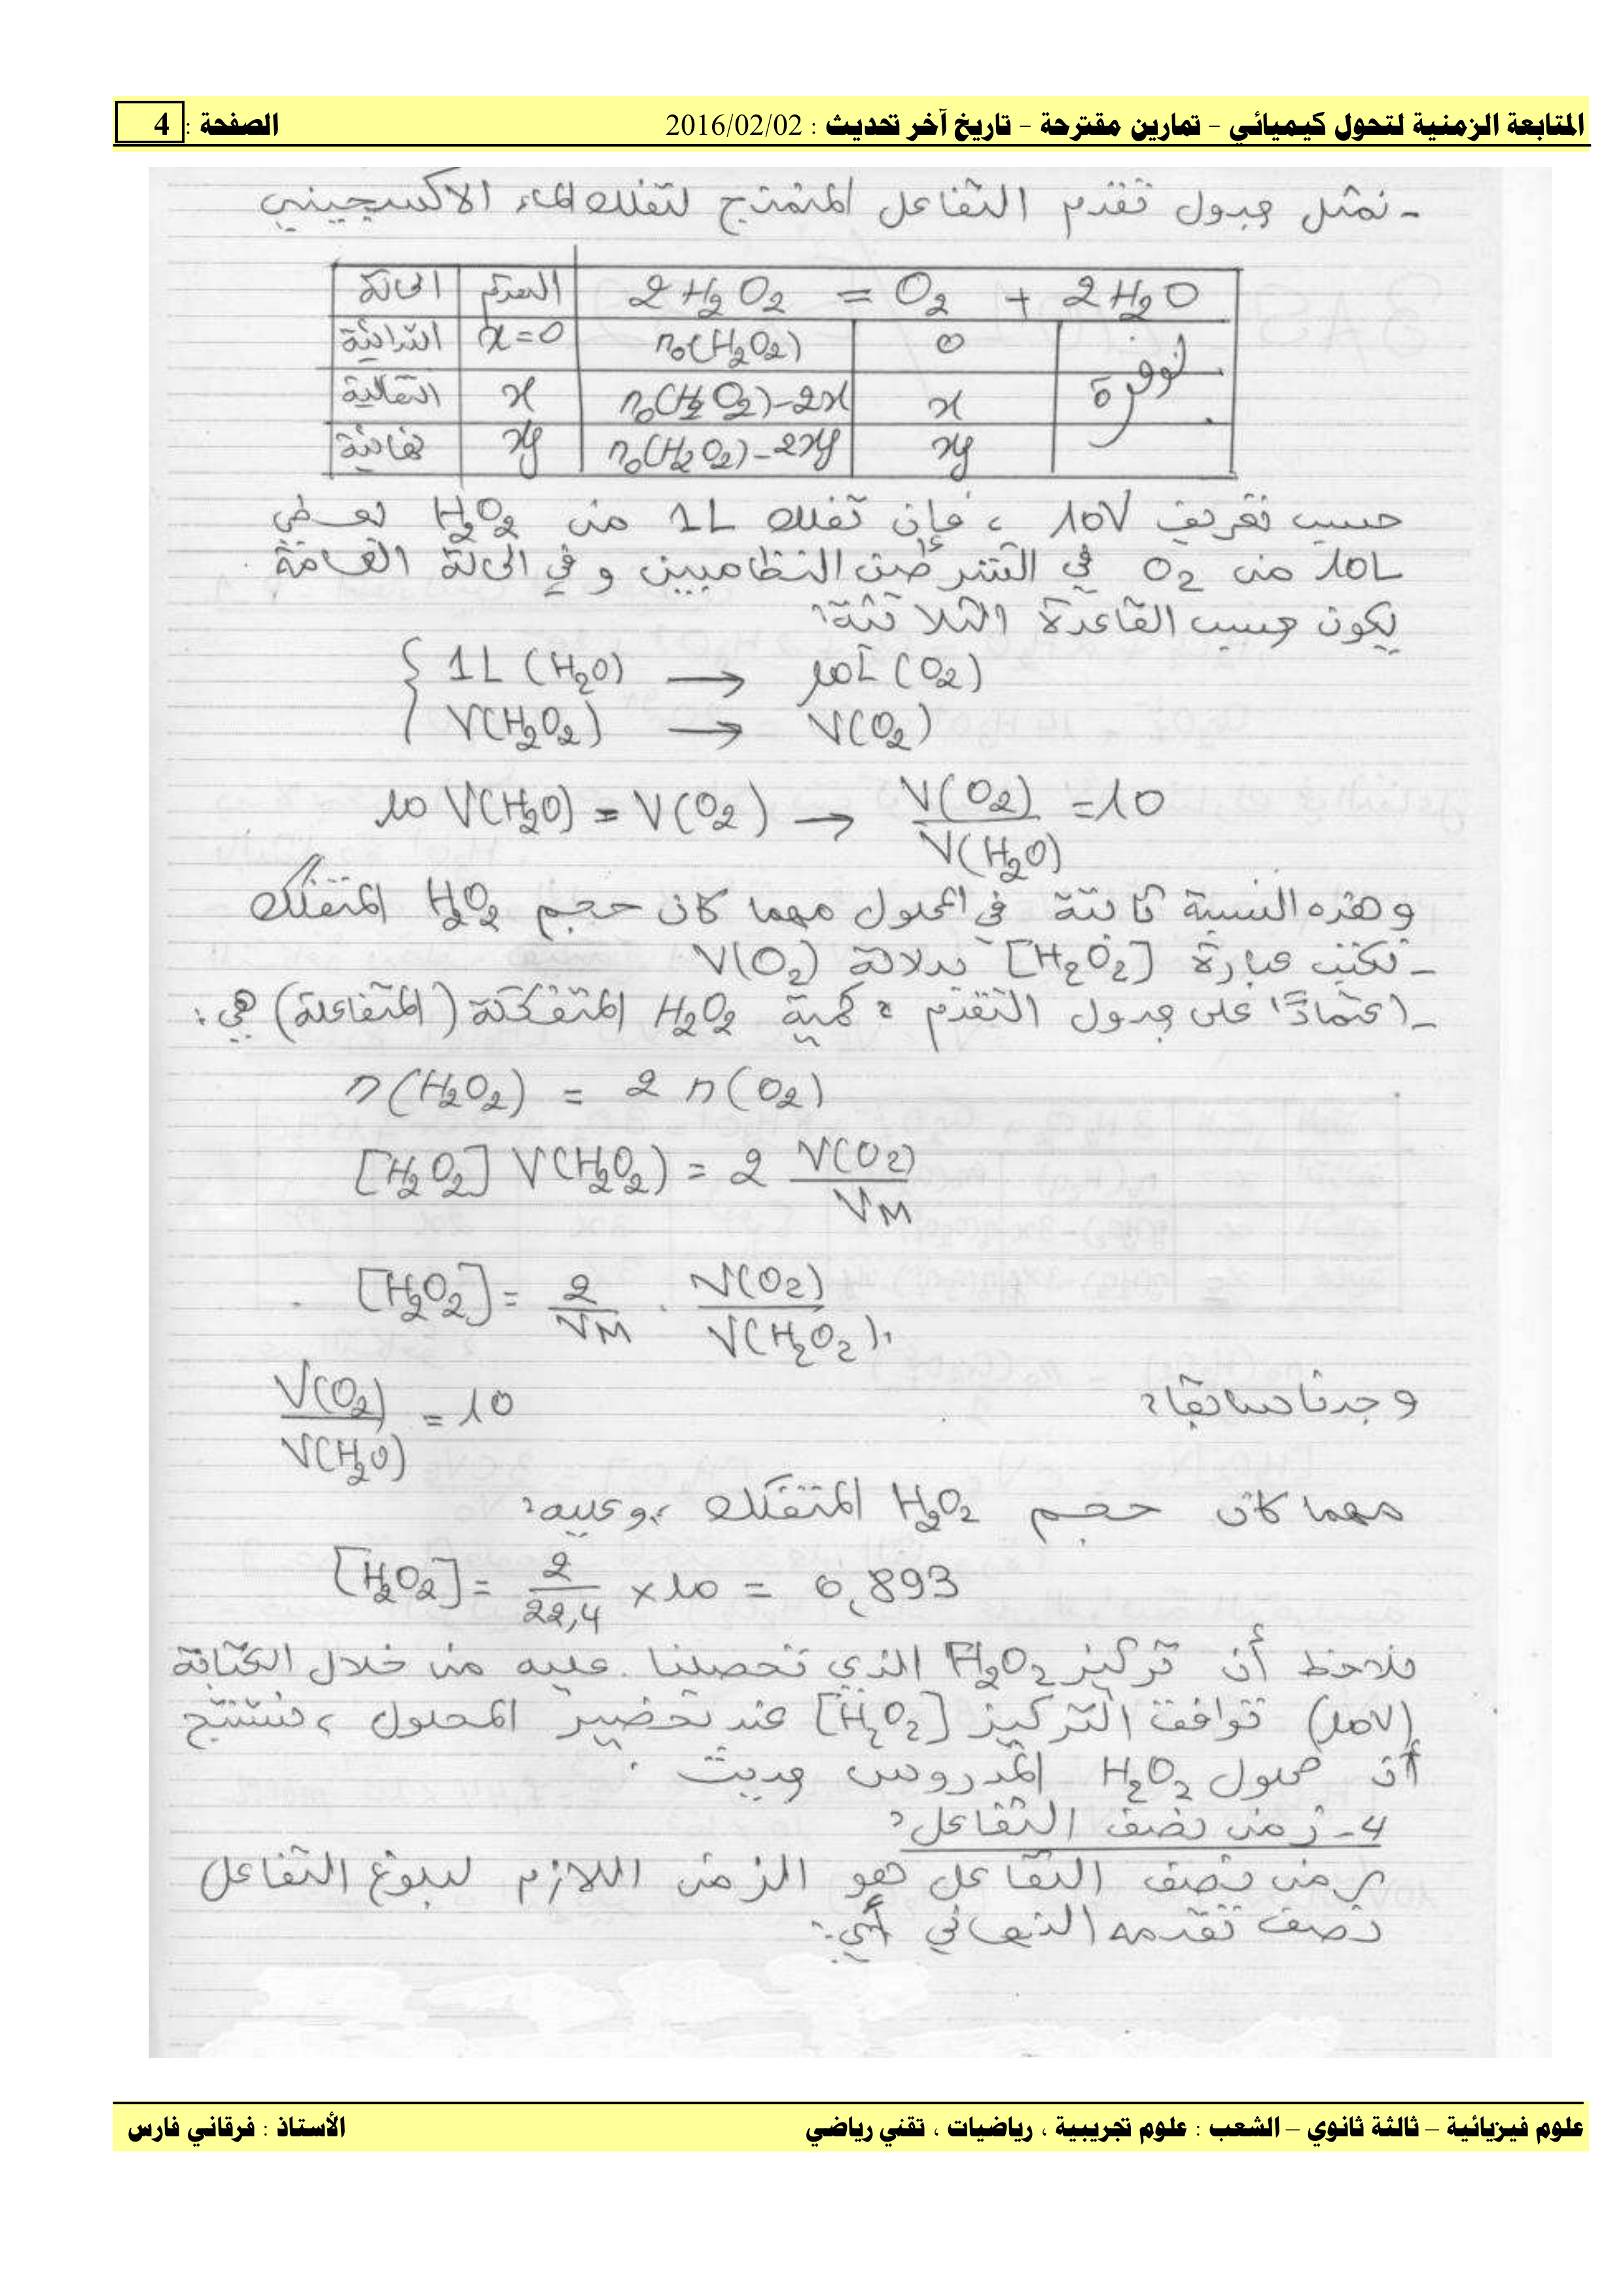 المتابعة الزمنية لتحول كيميائي – تمارين مقترحة – تاريخ آخر تحديث : 2016/02/02 الصفحة : 4
- نمثل جدول تقدم التفاعل المنمذج لتفكك الماء الأكسجيني
الحالة | التقدم | 2 H₂O₂ = O₂ + 2 H₂O
ابتدائية | x = 0 | n₀(H₂O₂) | 0 | بوفرة
انتقالية | x | n₀(H₂O₂) – 2x | x
نهائية | xf | n₀(H₂O₂) – 2xf | xf
حسب تعريف 10V ، فإن تفكك 1L من H₂O₂ تعطي
10L من O₂ في الشرطين النظاميين و في الحالة العامة
يكون حسب القاعدة الثلاثية :
1L (H₂O) → 10L (O₂)
V(H₂O₂) → V(O₂)
10 V(H₂O) = V(O₂) → V(O₂) / V(H₂O) = 10
و هذه النسبة ثابتة في المحلول مهما كان حجم H₂O₂ المتفكك
- نكتب عبارة [H₂O₂] بدلالة V(O₂)
- اعتمادًا على جدول التقدم : كمية H₂O₂ المتفككة (المتفاعلة) هي :
n(H₂O₂) = 2 n(O₂)
[H₂O₂] V(H₂O₂) = 2 V(O₂) / VM
[H₂O₂] = 2 / VM . V(O₂) / V(H₂O₂)
وجدنا سابقا : V(O₂) / V(H₂O) = 10
مهما كان حجم H₂O₂ المتفكك ، وعليه :
[H₂O₂] = 2 / 22,4 × 10 = 0,893
نلاحظ أن تركيز H₂O₂ الذي تحصلنا عليه من خلال الكتابة
(10V) توافق التركيز [H₂O₂] عند تحضير المحلول ، فنستنتج
أن محلول H₂O₂ المدروس حديث .
4- زمن نصف التفاعل :
زمن نصف التفاعل هو الزمن اللازم لبلوغ التفاعل
نصف تقدمه النهائي أي :
علوم فيزيائية – ثالثة ثانوي – الشعب : علوم تجريبية ، رياضيات ، تقني رياضي الأستاذ : فرقاني فارس